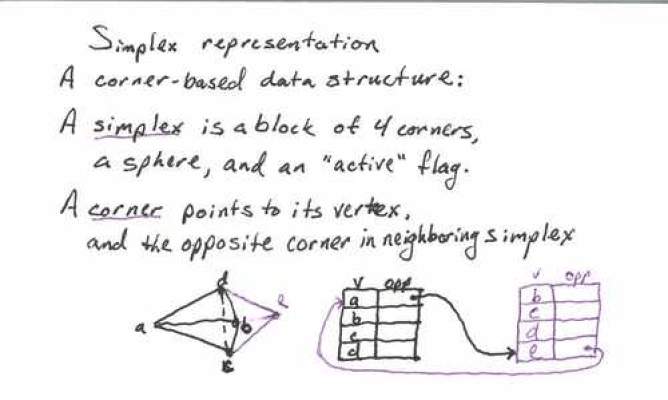 Simplex representation
A corner-based data structure:
A simplex is a block of 4 corners,
a sphere, and an "active" flag.
A corner points to its vertex,
and the opposite corner in neighboring simplex
d
e
a
b
c
V opp
a
b
c
d
V opp
b
c
d
e